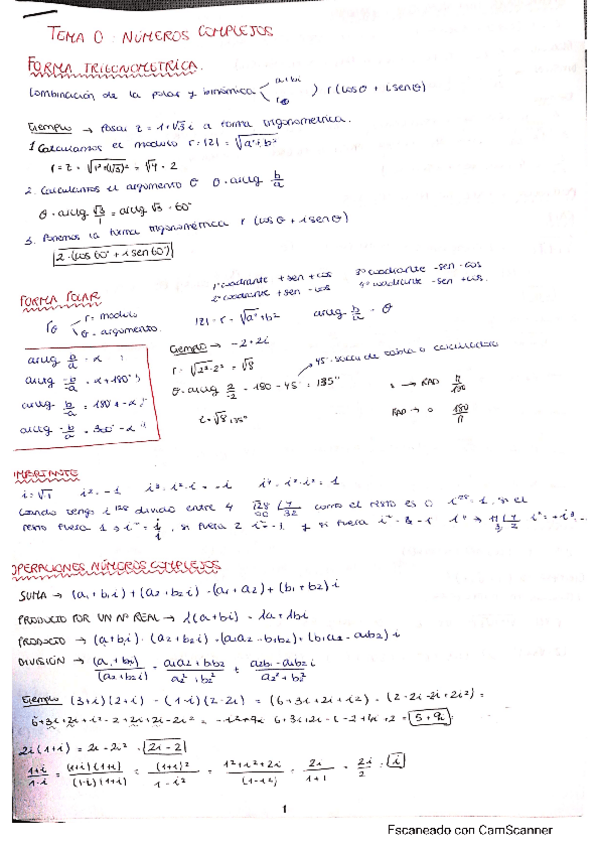 TEMA 0: NÚMEROS COMPLEJOS
FORMA TRIGONOMETRICA.
Combinación de la polar y binómica < a+bi rθ ) r(cosθ + i senθ)
Ejemplo → Pasar z = 1+√3 i a forma trigonometrica.
1. Calculamos el modulo r = |z| = √a²+b²
r = z = √1²+(√3)² = √4 = 2
2. Calculamos el argumento θ θ = arctg b/a
θ = arctg √3/1 = arctg √3 = 60°
3. Ponemos la forma trigonométrica r (cosθ + i senθ)
2·(cos 60° + i sen 60°)
1º cuadrante +sen +cos 3º cuadrante -sen -cos
2º cuadrante +sen -cos 4º cuadrante -sen +cos.
FORMA POLAR
rθ < r = modulo θ = argumento.
|z| = r = √a²+b² arctg b/a = θ
Ejemplo → -2+2i
r = √2²+2² = √8
45° sacado de tabla o calculadora
θ = arctg 2/-2 = 180-45° = 135°
z = √8 135°
° → RAD π/180
RAD → ° 180/π
IMPORTANTE
i = √-1 i² = -1 i³ = i²·i = -i i⁴ = i²·i² = 1
Cuando tengo i¹²⁸ divido entre 4 como el resto es 0 i¹²⁸ = 1, si el
resto fuera 1 → si fuera 2 = -1 y si fuera
OPERACIONES NÚMEROS COMPLEJOS
SUMA → (a₁+b₁i)+(a₂+b₂i) = (a₁+a₂)+(b₁+b₂)i
PRODUCTO POR UN Nº REAL → λ(a+bi) = λa+λbi
PRODUCTO → (a₁+b₁i)·(a₂+b₂i) = (a₁a₂-b₁b₂)+(b₁a₂-a₁b₂)i
DIVISIÓN → (a₁+b₁i)/(a₂+b₂i) = a₁a₂+b₁b₂/a₂²+b₂² + a₂b₁-a₁b₂ i/a₂²+b₂²
Ejemplo (3+i)(2+i) - (1-i)(2-2i) = (6+3i+2i+i²) - (2-2i-2i+2i²) =
6+3i+2i+i²-2+2i+2i-2i² = -i²+9i 6+3i+2i-1-2+4i+2 = 5+9i
2i(1+i) = 2i-2i² = 2i-2
1+i/1-i = (1+i)(1+i)/(1-i)(1+i) = (1+i)²/1-i² = 1²+i²+2i/(1-i²) = 2i/1+1 = 2i/2 = i
1
Escaneado con CamScanner